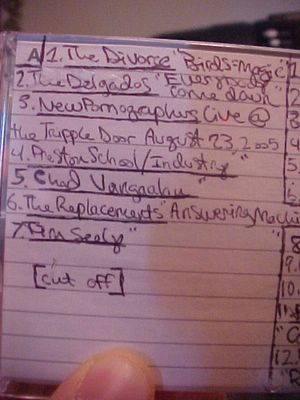 A 1. The Divorce "Birds=Magic"
2. The Delgados "Everybody
come down
3. New Pornographers Live @
the Tripple Door August 23, 2005
4. Preston School/Industry "
5. Chad Vangaalen "
6. The Replacements "Answering Machin
7. Tim Sealy"
[cut off]
1
2
3.
4
5.
8
9.
10.
12.